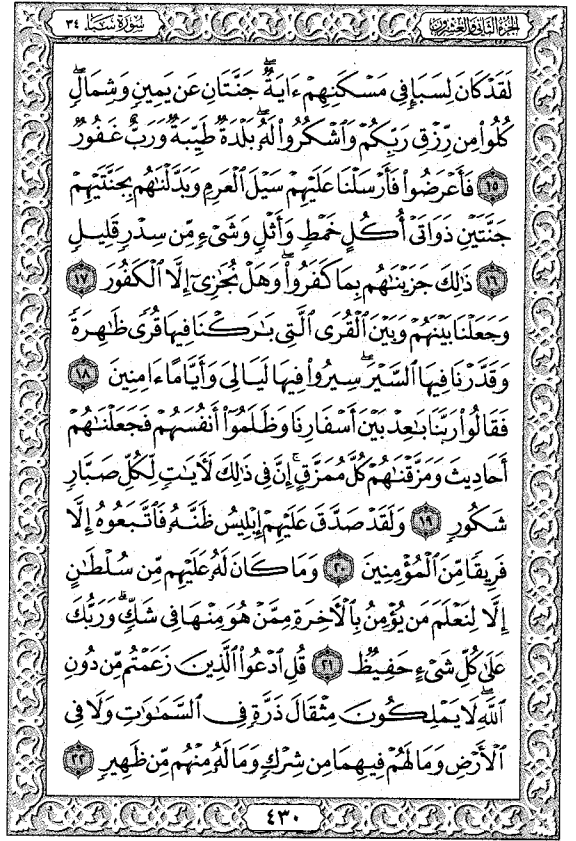 سُورَةُ سَبَإٍ ٣٤
الجزء الثاني والعشرون
لَقَدْ كَانَ لِسَبَإٍ فِى مَسْكَنِهِمْ ءَايَةٌ ۖ جَنَّتَانِ عَن يَمِينٍ وَشِمَالٍ ۖ
كُلُوا۟ مِن رِّزْقِ رَبِّكُمْ وَٱشْكُرُوا۟ لَهُۥ ۚ بَلْدَةٌ طَيِّبَةٌ وَرَبٌّ غَفُورٌ
١٥ فَأَعْرَضُوا۟ فَأَرْسَلْنَا عَلَيْهِمْ سَيْلَ ٱلْعَرِمِ وَبَدَّلْنَٰهُم بِجَنَّتَيْهِمْ
جَنَّتَيْنِ ذَوَاتَىْ أُكُلٍ خَمْطٍ وَأَثْلٍ وَشَىْءٍ مِّن سِدْرٍ قَلِيلٍ
١٦ ذَٰلِكَ جَزَيْنَٰهُم بِمَا كَفَرُوا۟ ۖ وَهَلْ نُجَٰزِىٓ إِلَّا ٱلْكَفُورَ ١٧
وَجَعَلْنَا بَيْنَهُمْ وَبَيْنَ ٱلْقُرَى ٱلَّتِى بَٰرَكْنَا فِيهَا قُرًى ظَٰهِرَةً
وَقَدَّرْنَا فِيهَا ٱلسَّيْرَ ۖ سِيرُوا۟ فِيهَا لَيَالِىَ وَأَيَّامًا ءَامِنِينَ ١٨
فَقَالُوا۟ رَبَّنَا بَٰعِدْ بَيْنَ أَسْفَارِنَا وَظَلَمُوٓا۟ أَنفُسَهُمْ فَجَعَلْنَٰهُمْ
أَحَادِيثَ وَمَزَّقْنَٰهُمْ كُلَّ مُمَزَّقٍ ۚ إِنَّ فِى ذَٰلِكَ لَءَايَٰتٍ لِّكُلِّ صَبَّارٍ
شَكُورٍ ١٩ وَلَقَدْ صَدَّقَ عَلَيْهِمْ إِبْلِيسُ ظَنَّهُۥ فَٱتَّبَعُوهُ إِلَّا
فَرِيقًا مِّنَ ٱلْمُؤْمِنِينَ ٢٠ وَمَا كَانَ لَهُۥ عَلَيْهِم مِّن سُلْطَٰنٍ
إِلَّا لِنَعْلَمَ مَن يُؤْمِنُ بِٱلْءَاخِرَةِ مِمَّنْ هُوَ مِنْهَا فِى شَكٍّ ۗ وَرَبُّكَ
عَلَىٰ كُلِّ شَىْءٍ حَفِيظٌ ٢١ قُلِ ٱدْعُوا۟ ٱلَّذِينَ زَعَمْتُم مِّن دُونِ
ٱللَّهِ ۖ لَا يَمْلِكُونَ مِثْقَالَ ذَرَّةٍ فِى ٱلسَّمَٰوَٰتِ وَلَا فِى
ٱلْأَرْضِ وَمَا لَهُمْ فِيهِمَا مِن شِرْكٍ وَمَا لَهُۥ مِنْهُم مِّن ظَهِيرٍ ٢٢
٤٣٠